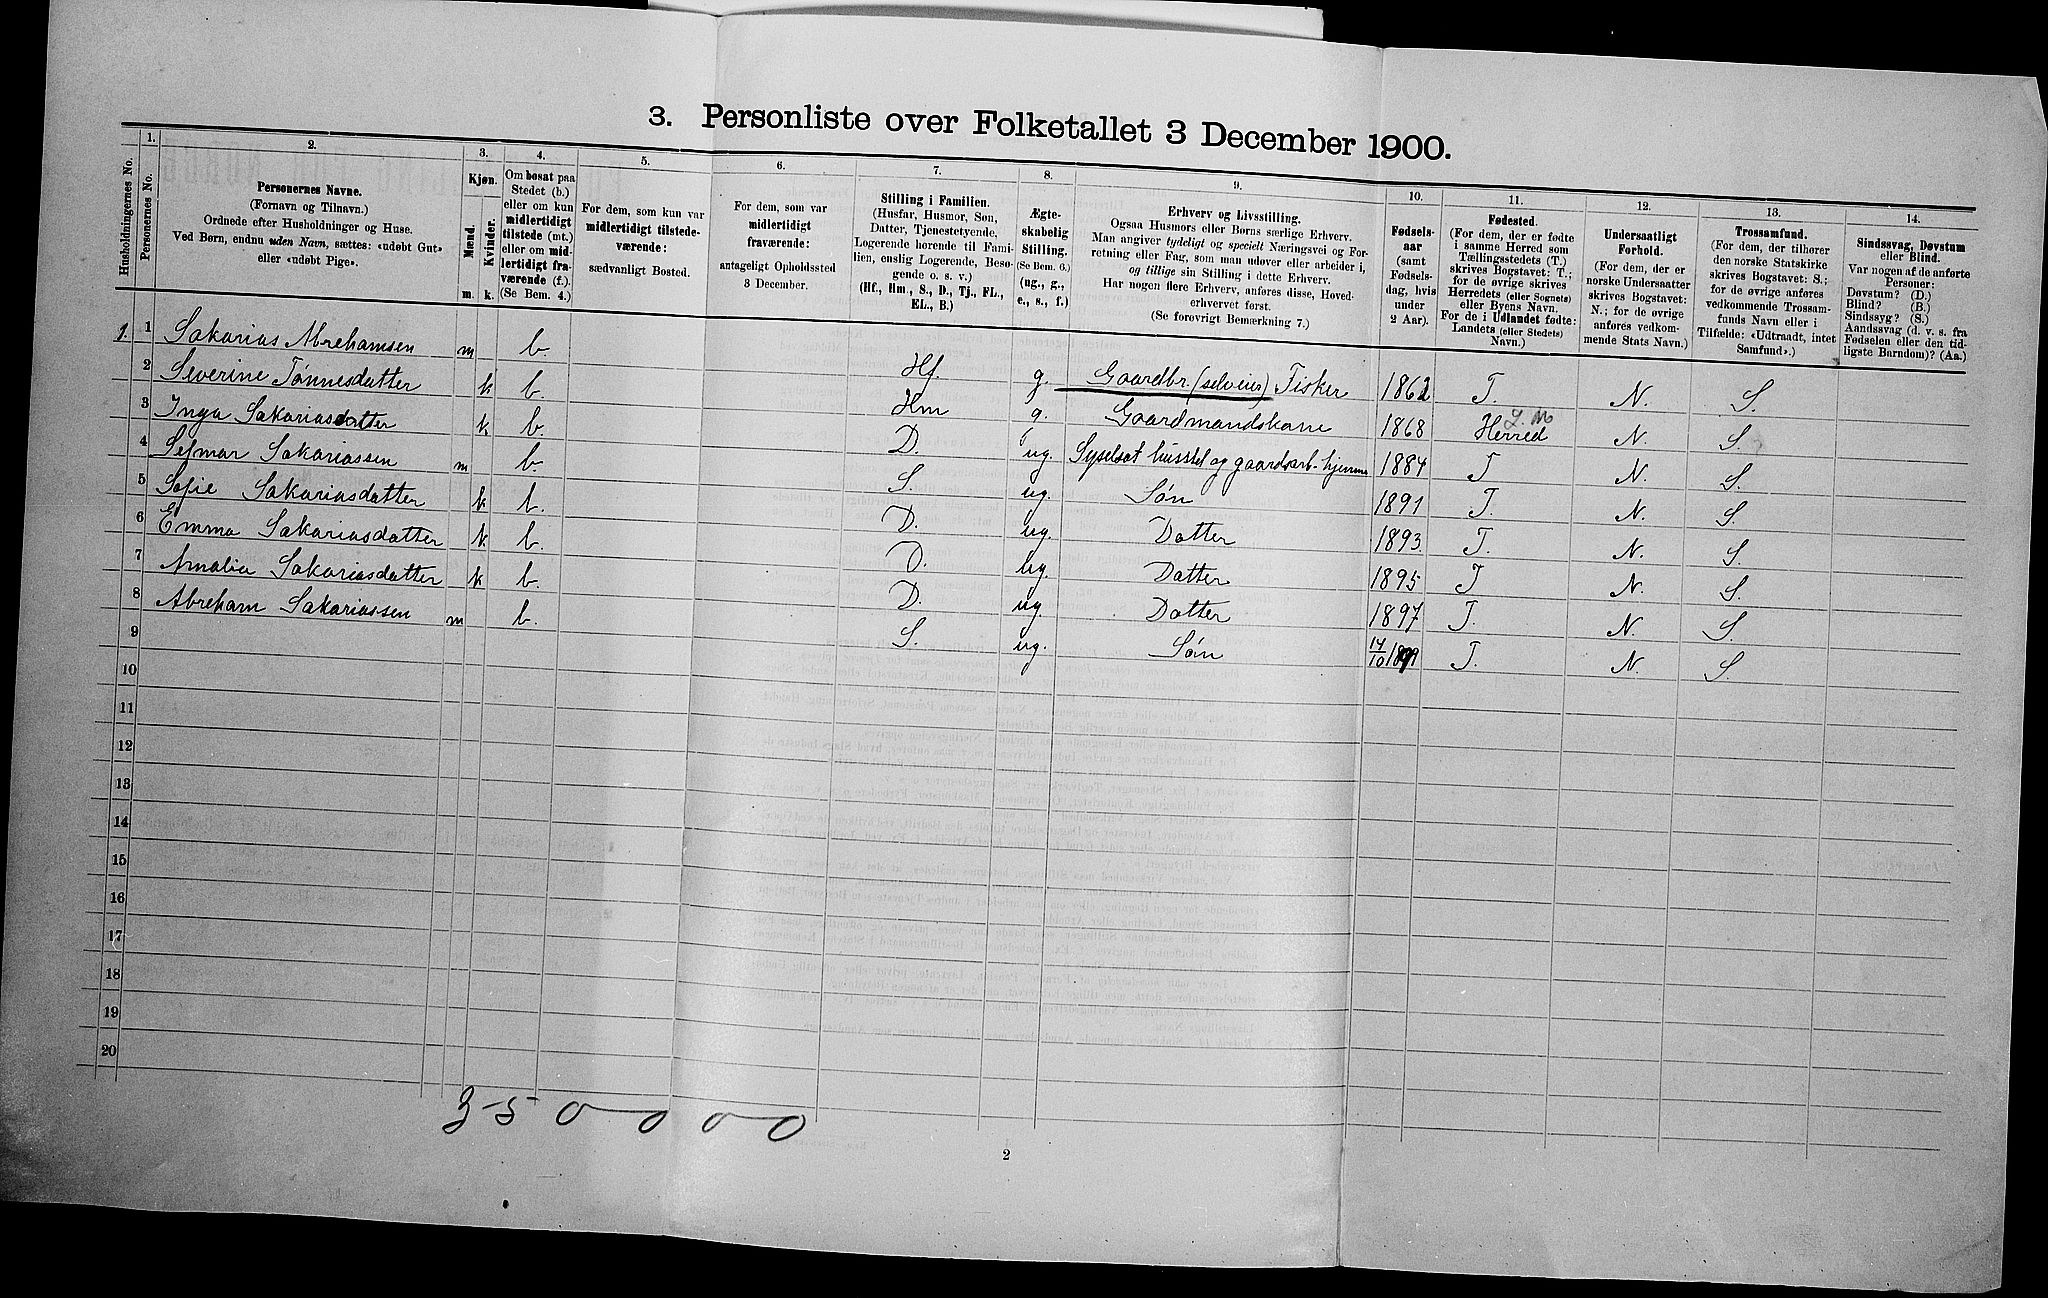 3. Personliste over Folketallet 3 December 1900.
1. 2. 3. 4. 5. 6. 7. 8. 9. 10. 11. 12. 13. 14.
Husholdningernes No.
Personernes No.
Personernes Navne.
(Fornavn og Tilnavn.)
Ordnede efter Husholdninger og Huse.
Ved Børn, endnu uden Navn, sættes: «udøbt Gut»
eller «udøbt Pige».
Kjøn.
Mænd.
Kvinder.
m. k.
Om bosat paa
Stedet (b.)
eller om kun
midlertidigt
tilstede (mt.)
eller om mid-
lertidigt fra-
værende (f.).
(Se Bem. 4.)
For dem, som kun var
midlertidigt tilstede-
værende:
sædvanligt Bosted.
For dem, som var
midlertidigt
fraværende:
antageligt Opholdssted
3 December.
Stilling i Familien.
(Husfar, Husmor, Søn,
Datter, Tjenestetyende,
Logerende hørende til Fami-
lien, enslig Logerende, Besø-
gende o. s. v.)
(Hf., Hm., S., D., Tj., FL.,
EL., B.)
Ægte-
skabelig
Stilling.
(Se Bem. 6.)
(ug., g.,
e., s., f.)
Erhverv og Livsstilling.
Ogsaa Husmors eller Børns særlige Erhverv.
Man angiver tydeligt og specielt Næringsvei og For-
retning eller Fag, som man udøver eller arbeider i,
og tillige sin Stilling i dette Erhverv.
Har nogen flere Erhverv, anføres disse, Hoved-
erhvervet først.
(Se forøvrigt Bemærkning 7.)
Fødsels-
aar
(samt
Fødsels-
dag, hvis
under
2 Aar).
Fødested.
(For dem, der er fødte
i samme Herred som
Tællingsstedets (T.)
skrives Bogstavet: T.;
for de øvrige skrives
Herredets (eller Sognets)
eller Byens Navn.
For de i Udlandet fødte:
Landets (eller Stedets)
Navn.)
Undersaatligt
Forhold.
(For dem, der er
norske Undersaatter
skrives Bogstavet:
N.; for de øvrige
anføres vedkom-
mende Stats Navn.)
Trossamfund.
(For dem, der tilhører
den norske Statskirke
skrives Bogstavet: S.;
for de øvrige anføres
vedkommende Trossam-
funds Navn eller i
Tilfælde: «Udtraadt, intet
Samfund».)
Sindssvag, Døvstum
eller Blind.
Var nogen af de anførte
Personer:
Døvstum? (D.)
Blind? (B.)
Sindssyg? (S.)
Aandssvag (d. v. s. fra
Fødselen eller den tid-
ligste Barndom)? (Aa.)
1. 1 Sakarias Abrehamsen m b. Hf. g. Gaardbr. (selveier) Fisker 1862 T. N. S.
2 Severine Tønnesdatter k b. Hm g. Gaardmandskone 1868 Herred N. S.
3 Inga Sakariasdatter k b. D. ug. Sysselsat husstel og gaardsarb. hjemme 1884 T N. S.
4 Selmar Sakariassen m b. S. ug. Søn 1891 T. N. S.
5 Sofie Sakariasdatter k b. D. ug. Datter 1893 T. N. S.
6 Emma Sakariasdatter k b. D. ug. Datter 1895 T N. S.
7 Amalia Sakariasdatter k b. D. ug. Datter 1897 T. N. S.
8 Abreham Sakariassen m b. S. ug. Søn 14/10 1899 T. N. S.
9
10
11
12
13
14
15
16
17
18
19
20
3-5 0-0 0-0
2